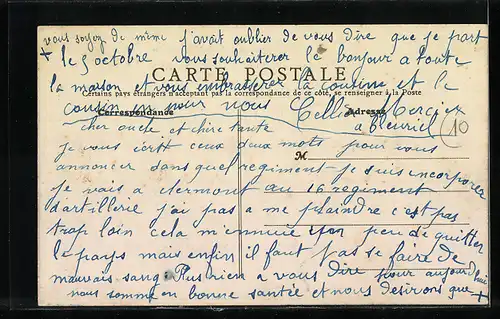 vous soyez de même j'avait oublier de vous dire que je part
+ le 5 octobre vous souhaiterer le bonjour a toute
la maison et vous embrasserer la cousine et le
CARTE POSTALE
Certains pays étrangers n'acceptant pas la correspondance de ce côté, se renseigner à la Poste
cousin pour nous Cellier Mercier
Correspondance
Adresse
à Fleuriel
10
M
cher oncle et chère tante
je vous écrit ceux deux mots pour vous
annoncer dans quel regiment je suis incorporer
je vais a clermont au 16 regiment
d'artillerie j'ai pas a me plaindre c'est pas
trop loin cela m'ennuie un peu de quitter
le pays mais enfin il faut pas se faire de
mauvais sang Plus rien a vous dire pour aujourd'hui
nous somme en bonne santée et nous désirons que +